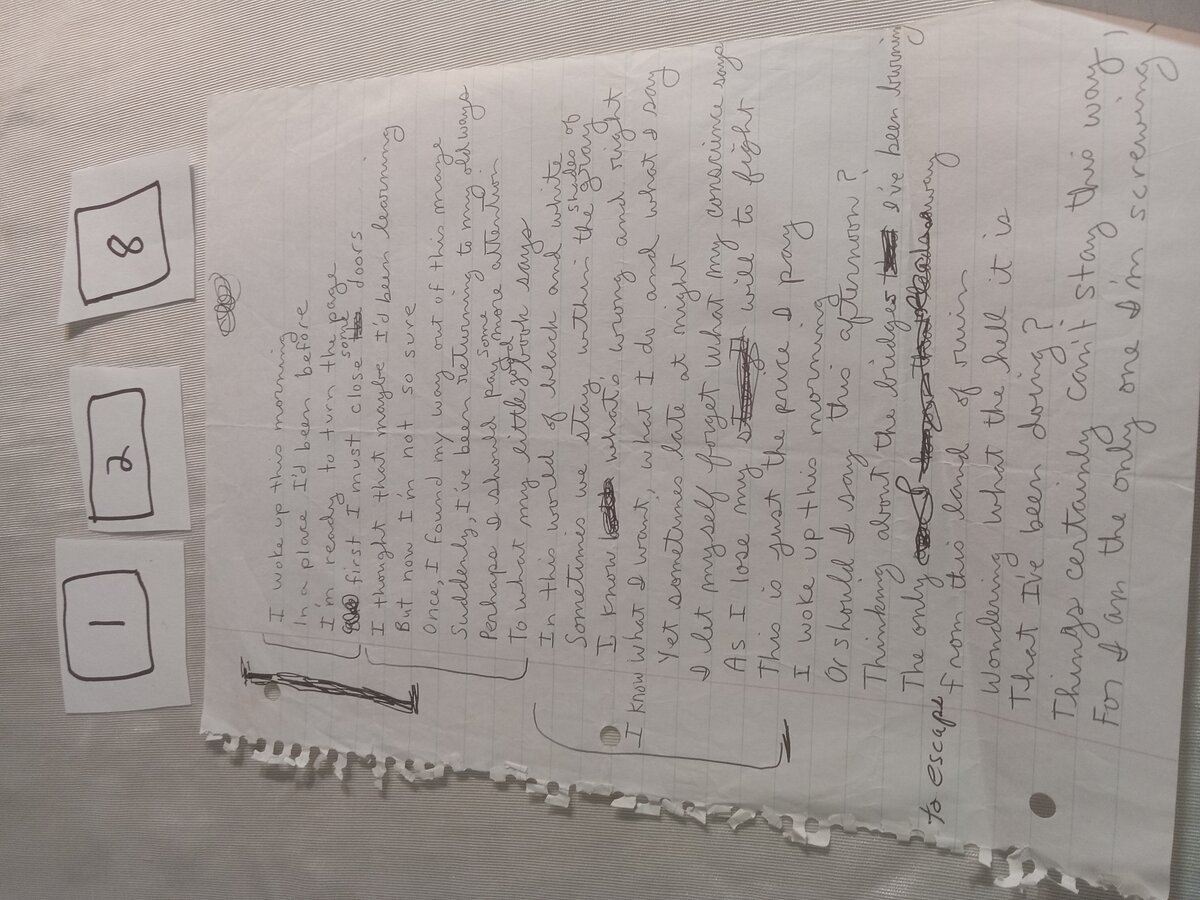 1 2 8
I woke up this morning
In a place I'd been before
I'm ready to turn the page
first I must close some doors
I thought that maybe I'd been learning
But now I'm not so sure
Once, I found my way out of this maze
Suddenly, I've been returning to my old ways
Perhaps I should pay some more attention
To what my little good book says
In this world of black and white
Sometimes we stay within the shades of gray
I know whats wrong and right
I know what I want, what I do and what I say
Yet sometimes late at night
I let myself forget what my conscience says
As I lose my will to fight
This is just the price I pay
I woke up this morning
Or should I say this afternoon?
Thinking about the bridges I've been burning
The only way
to escape from this land of ruin
Wondering what the hell it is
That I've been doing?
Things certainly can't stay this way,
For I am the only one I'm screwing